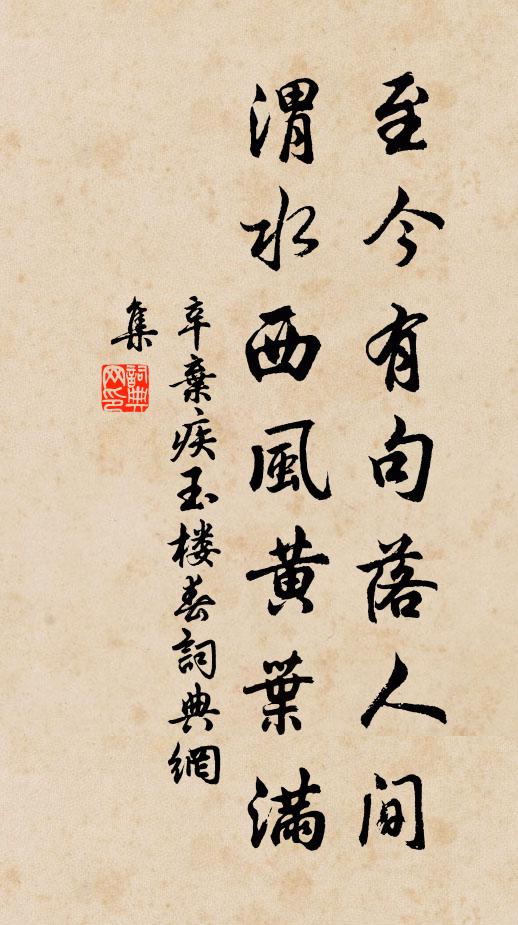 至今有句落人间
渭水西風黄葉满
辛棄疾玉楼春詞典網
集
詞典网印